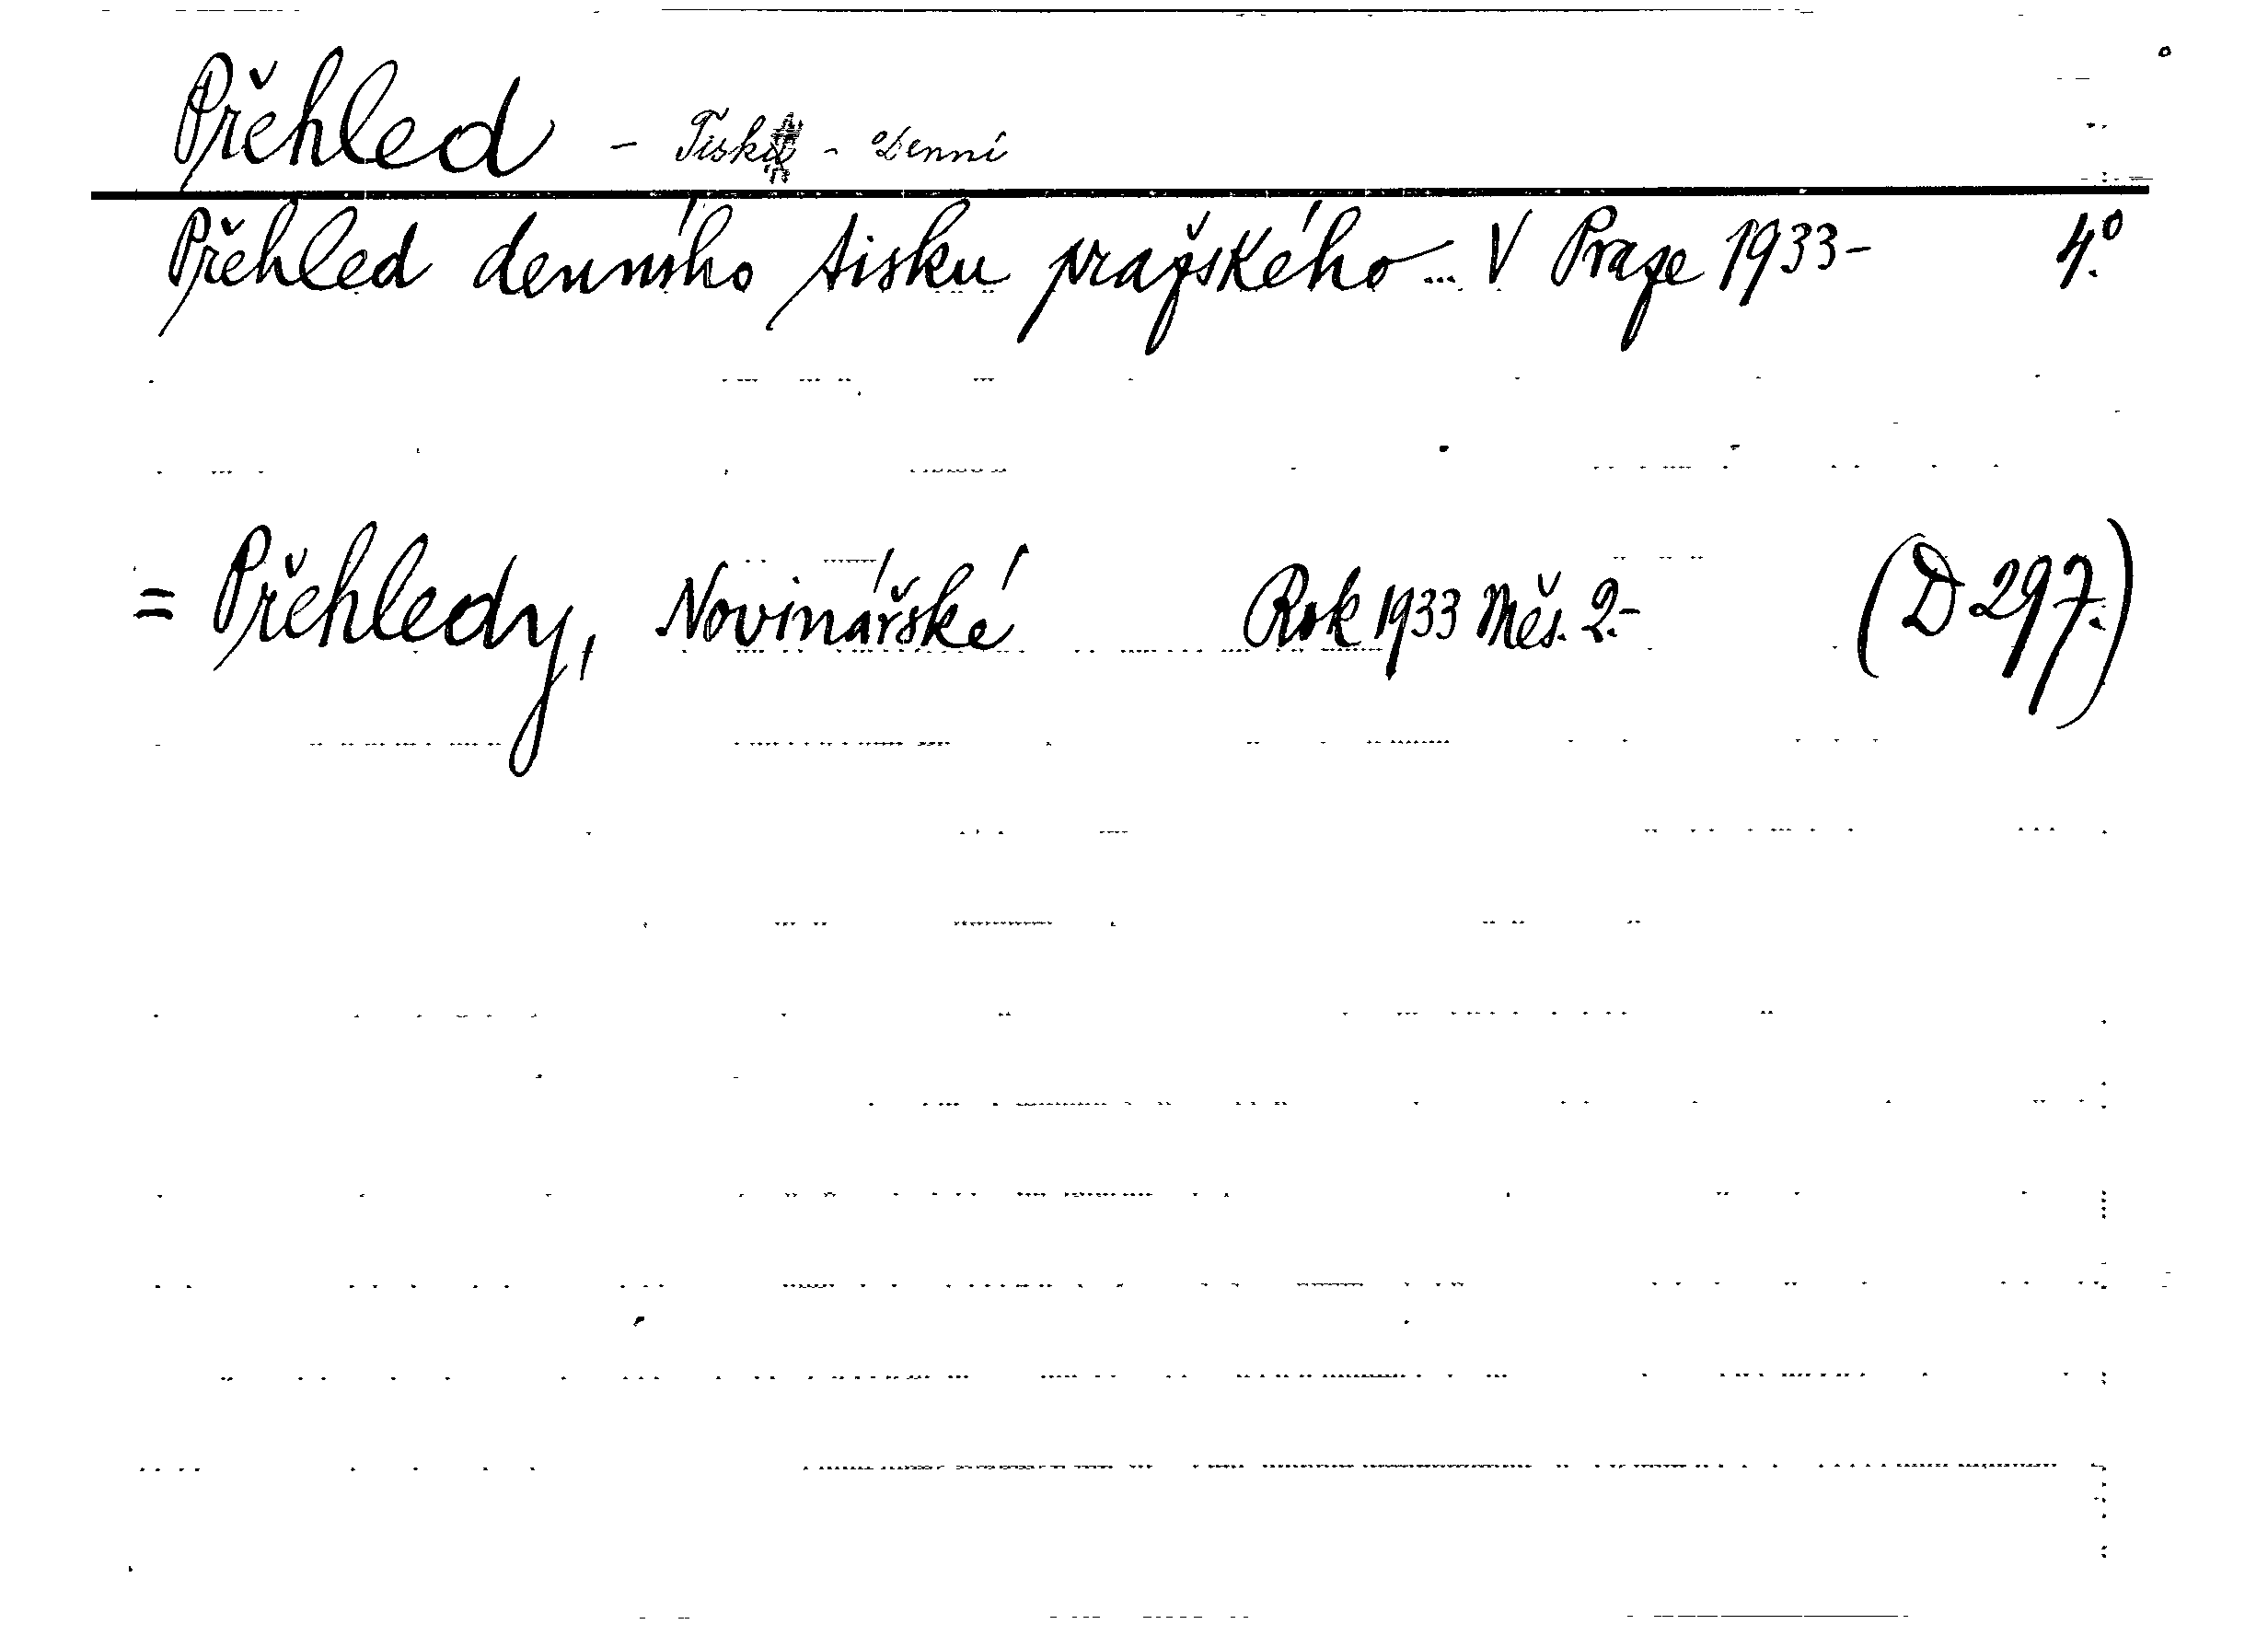 Přehled - Tisk - Denní
Přehled denního tisku pražského... V Praze 1933- 4.°
= Přehledy, Novinářské Rok 1933 Měs. 2.- (D 297.)